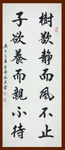 樹欲靜而風不止
子欲養而親不待